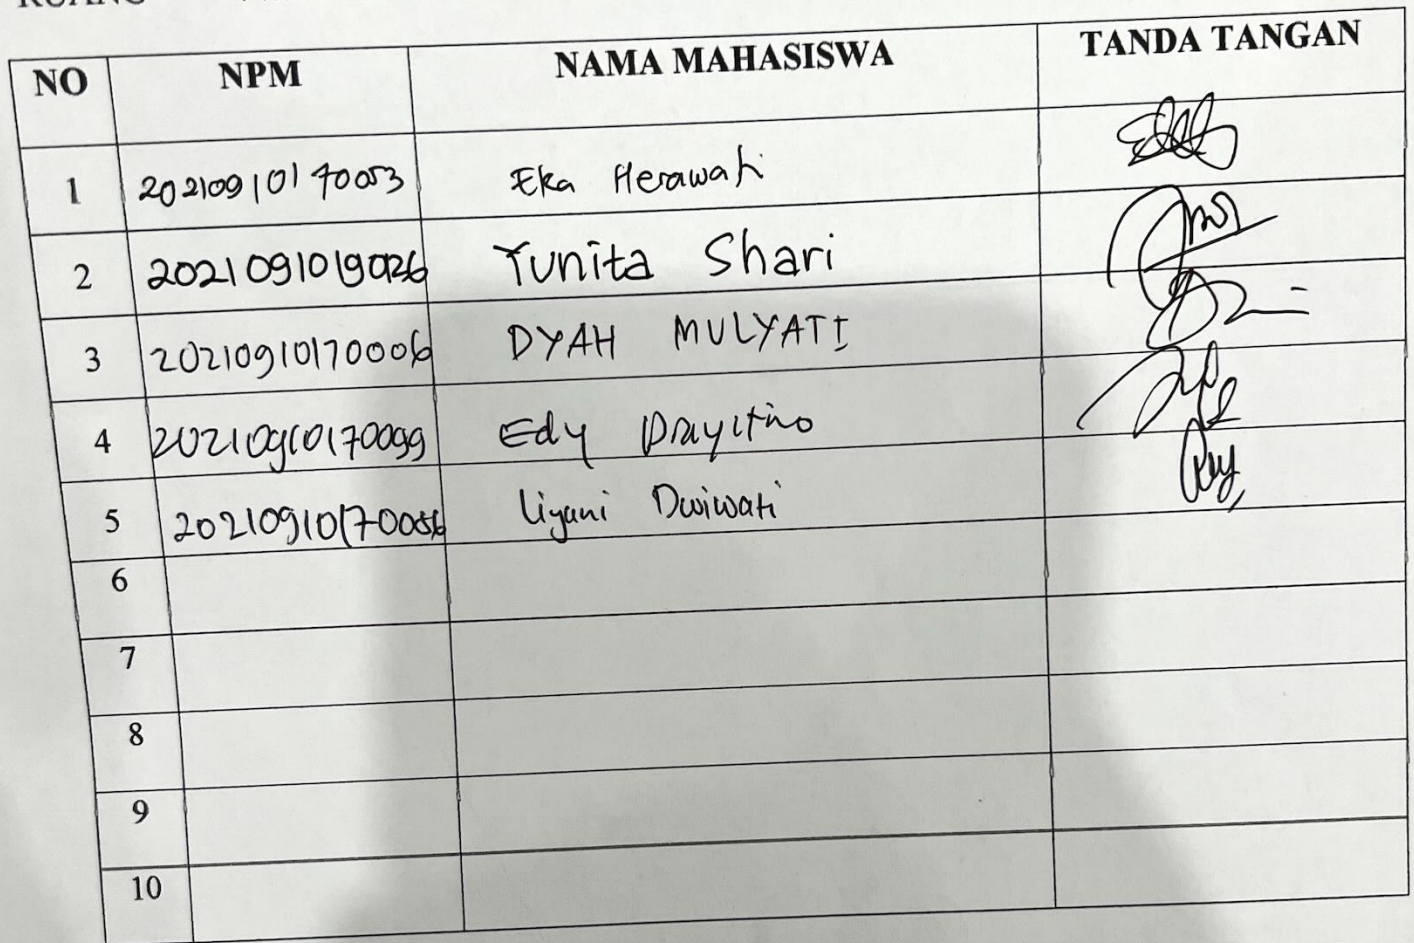 NO NPM NAMA MAHASISWA TANDA TANGAN
1 20210910170053 Eka Herawati
2 20210910190126 Yunita Shari
3 20210910170006 DYAH MULYATI
4 20210910170099 Edy Prayitno
5 Liyani Dwiwati
6
7
8
9
10